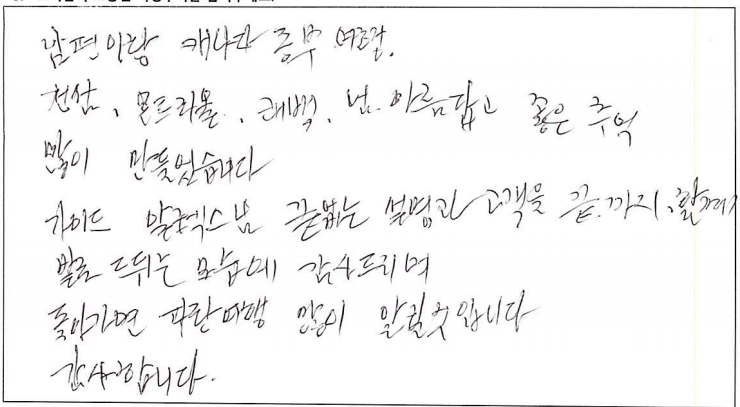 남편이랑 캐나다 동부 여행.
천섬, 몬트리올, 퀘벡, 넘 아름답고 좋은 추억
많이 만들었습니다
가이드 알렉스님 끝없는 설명과 고객을 끝.까지,
발로 뛰는 모습에 감사드리며
돌아가면 파란여행 많이 알릴것입니다
감사합니다.